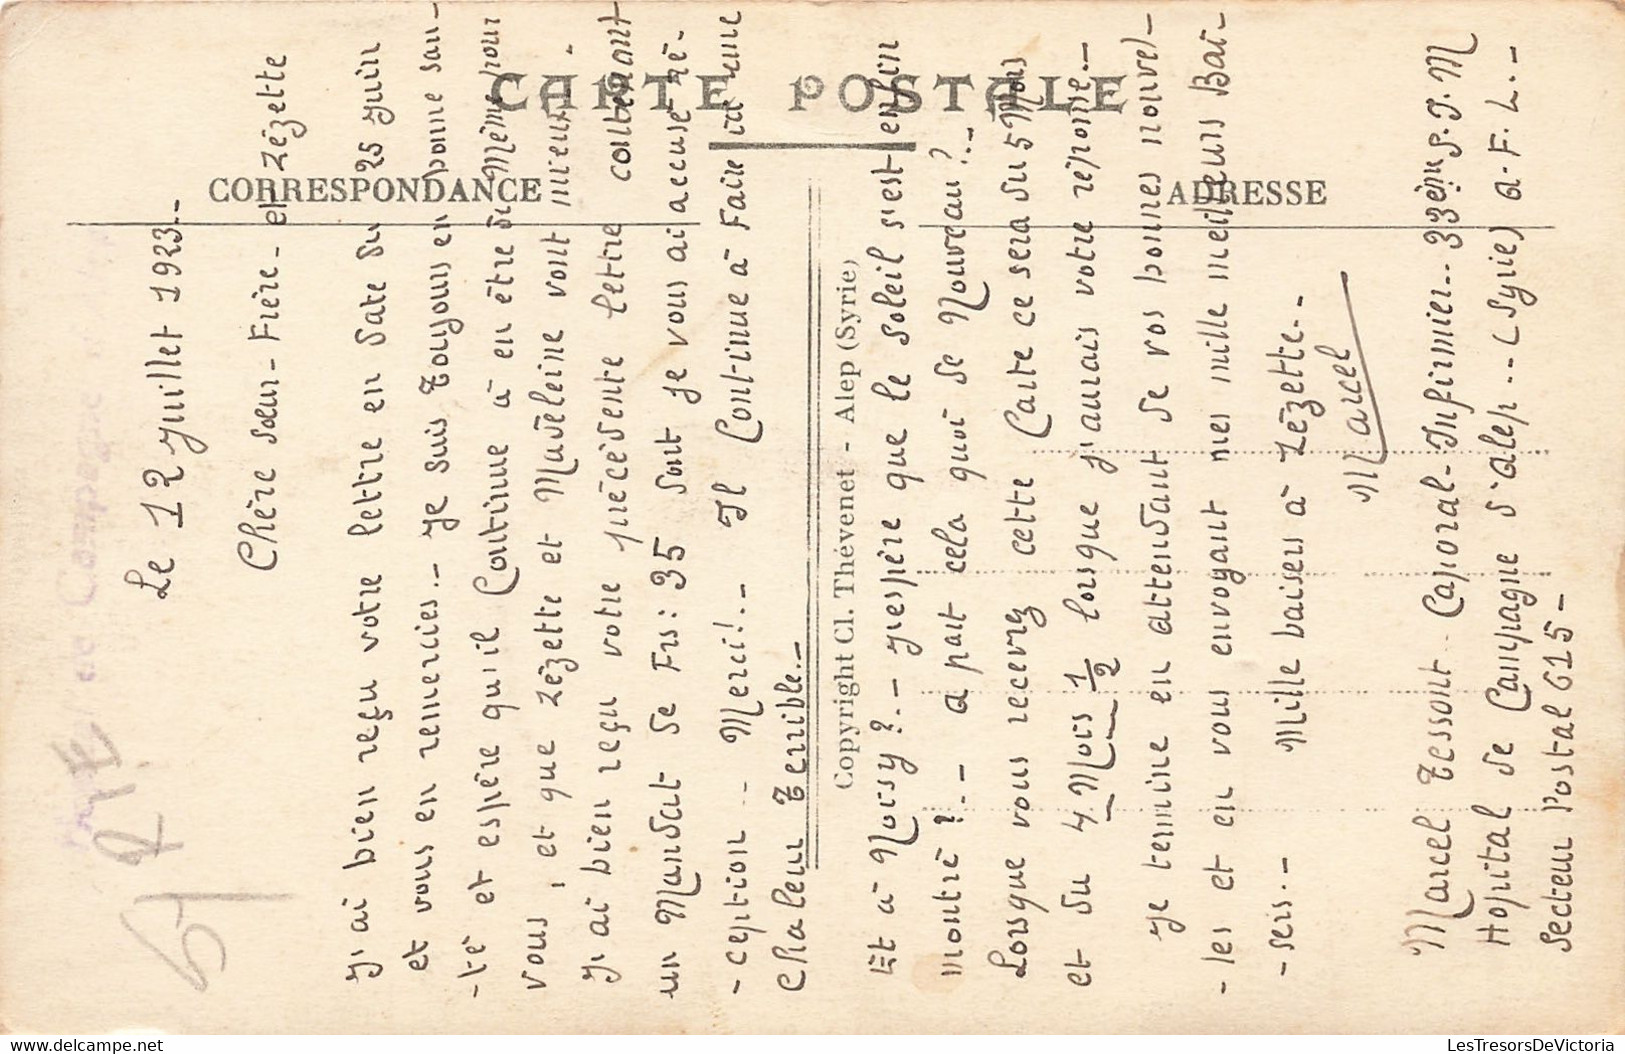 CARTE POSTALE
CORRESPONDANCE
ADRESSE
Copyright Cl. Thévenet - Alep (Syrie)
Le 12 juillet 1923.-
Chère sœur - Frère - et Zézette
J'ai bien reçu votre lettre en date du 25 juin
et vous en remercies.- Je suis toujours en bonne san-
-té et espère qu'il continue à en être de même pour
vous, et que Zézette et Madeleine vont mieux.-
J'ai bien reçu votre précédente lettre contenant
un Mandat de Frs: 35 dont je vous ai accusé ré-
-ception.. Merci!.- Il continue à faire une
chaleur terrible.-
Et à Noisy?.- J'espère que le soleil s'est enfin
montré?.- à part cela quoi de nouveau?.-
Lorsque vous recevrez cette carte ce sera du 5 Mois
et du 4 Mois 1/2 lorsque j'aurais votre réponse.-
Je termine en attendant de vos bonnes nouvel-
-les et en vous envoyant mes mille meilleurs Bai-
-sers.- Mille baisers à Zézette..
Marcel
Marcel Tessont Caporal-Infirmier.. 33ème S.I.M
Hopital de Campagne d'Alep.. (Syrie) A.F.L.-
Secteur Postal 615-
LesTresorsDeVictoria
delcampe.net